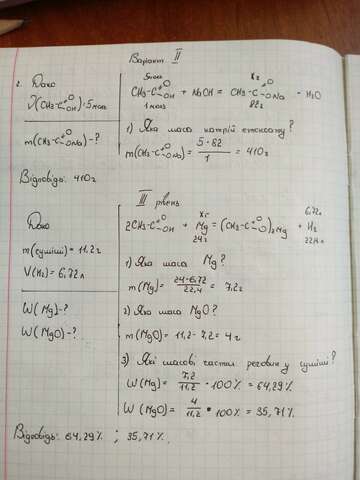 Варіант II
2. Дано
ν(CH₃-C(=O)OH) · 5 моль
m(CH₃-C(=O)ONa) - ?
Відповідь: 410 г
5 моль X г
CH₃-C(=O)OH + NaOH = CH₃-C(=O)ONa + H₂O
1 моль 82 г
1) Яка маса натрій етаноату?
m(CH₃-C(=O)ONa) = 5 · 82 / 1 = 410 г
III рівень
Дано
m(суміші) = 11,2 г
V(H₂) = 6,72 л
W(Mg) - ?
W(MgO) - ?
X г 6,72 л
2CH₃-C(=O)OH + Mg = (CH₃-C(=O)O)₂Mg + H₂
24 г 22,4 л
1) Яка маса Mg?
m(Mg) = 24 · 6,72 / 22,4 = 7,2 г
2) Яка маса MgO?
m(MgO) = 11,2 - 7,2 = 4 г
3) Які масові частки речовин у суміші?
W(Mg) = 7,2 / 11,2 · 100% = 64,29%
W(MgO) = 4 / 11,2 · 100% = 35,71%
Відповідь: 64,29% ; 35,71%.